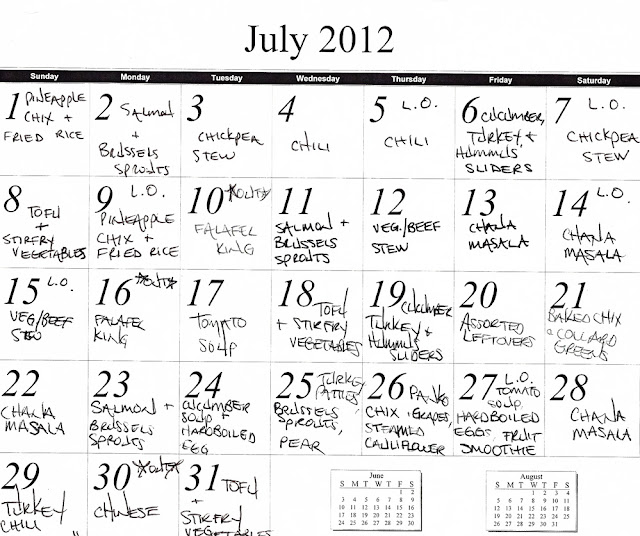 July 2012
Sunday Monday Tuesday Wednesday Thursday Friday Saturday
1 PINEAPPLE
CHIX +
FRIED RICE
2 SALMON
+
BRUSSELS
SPROUTS
3
CHICKPEA
STEW
4
CHILI
5 L.O.
CHILI
6 CUCUMBER,
TURKEY, +
HUMMUS
SLIDERS
7 L.O.
CHICKPEA
STEW
8 TOFU
+
STIRFRY
VEGETABLES
9 L.O.
PINEAPPLE
CHIX +
FRIED RICE
10
FALAFEL
KING
11
SALMON +
BRUSSELS
SPROUTS
12
VEG./BEEF
STEW
13
CHANA
MASALA
14 L.O.
CHANA
MASALA
15 L.O.
VEG/BEEF
16
FALAFEL
KING
17
TOMATO
SOUP
18 TOFU
+ STIRFRY
VEGETABLES
19 CUCUMBER
TURKEY +
HUMMUS
SLIDERS
20
ASSORTED
LEFTOVERS
21
BAKED CHIX
COLLARD
GREENS
22
CHANA
MASALA
23
SALMON +
BRUSSELS
SPROUTS
24
CUCUMBER
SOUP
HARDBOILED
EGG
25 TURKEY
PATTIES,
BRUSSELS
SPROUTS,
PEAR
26 PANKO
CHIX, GRAPES,
STEAMED
CAULIFLOWER
27 L.O.
TOMATO
SOUP,
HARDBOILED
EGGS, FRUIT
SMOOTHIE
28
CHANA
MASALA
29
TURKEY
CHILI
30
CHINESE
31 TOFU
+
STIRFRY
VEGETABLES
June
S M T W T F S
1 2
3 4 5 6 7 8 9
10 11 12 13 14 15 16
17 18 19 20 21 22 23
24 25 26 27 28 29 30
August
S M T W T F S
1 2 3 4
5 6 7 8 9 10 11
12 13 14 15 16 17 18
19 20 21 22 23 24 25
26 27 28 29 30 31